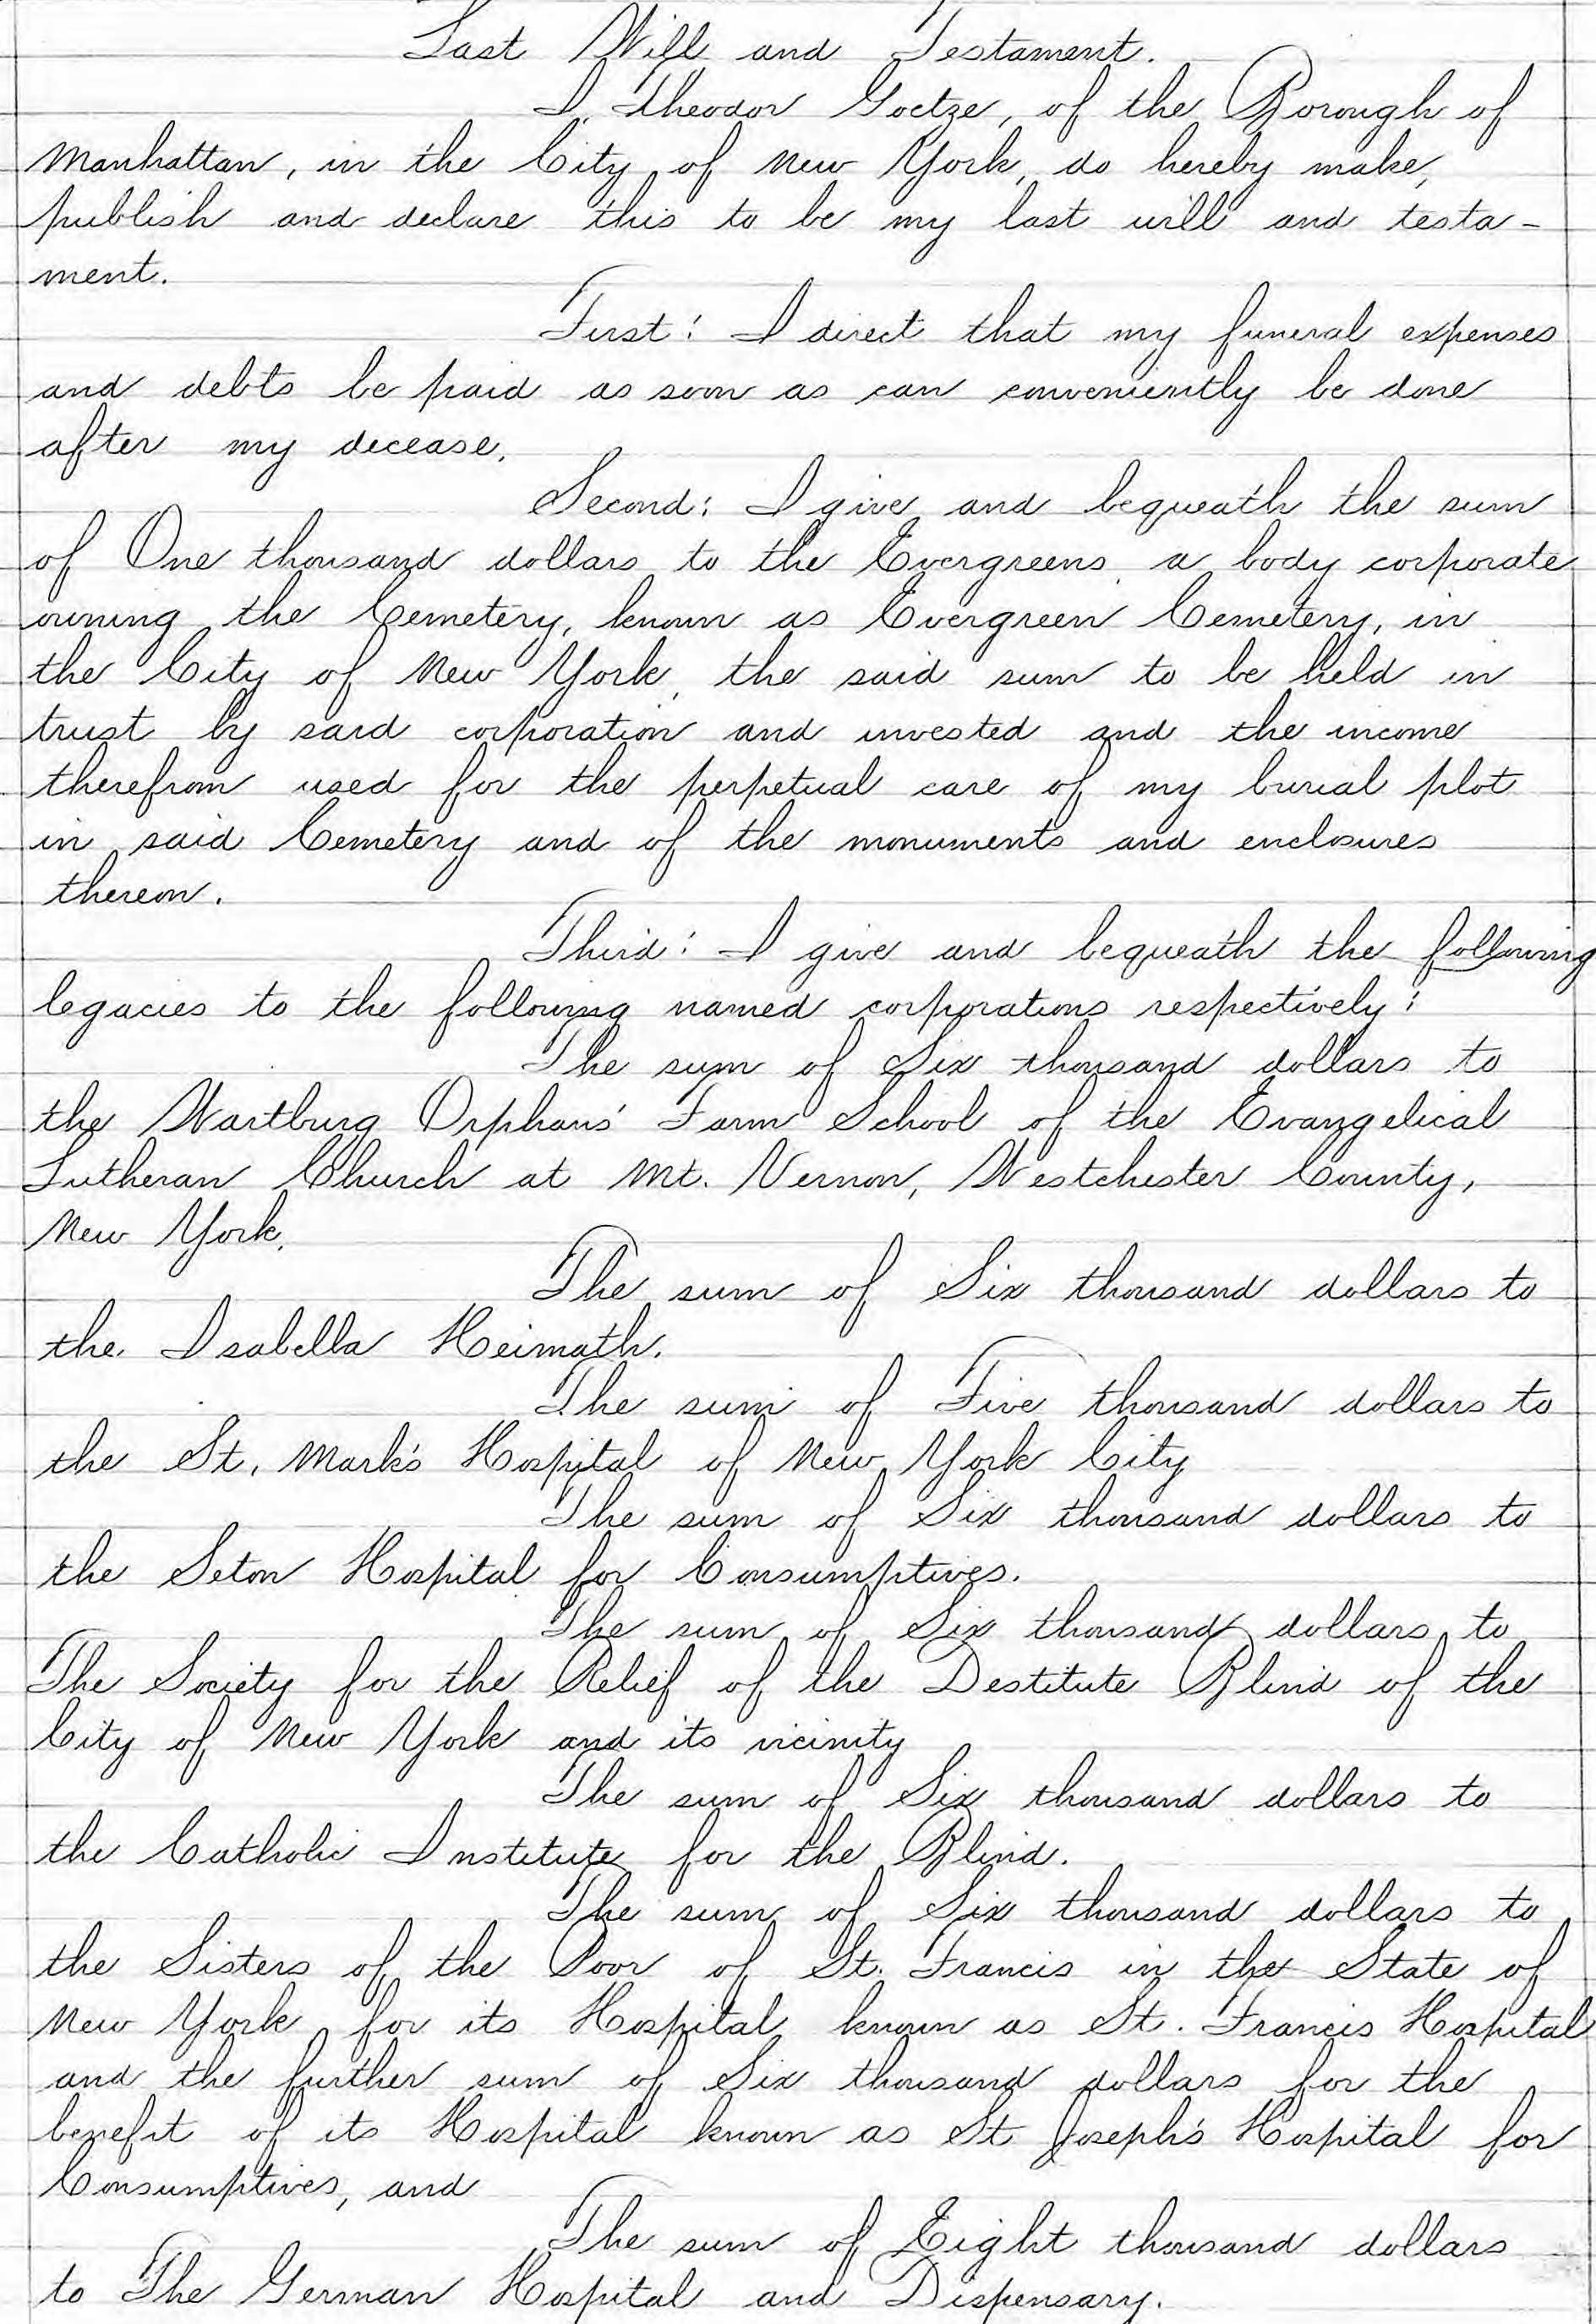 Last Will and Testament.
I, Theodor Goetze, of the Borough of
Manhattan, in the City of New York, do hereby make,
publish and declare this to be my last will and testa-
ment.
First: I direct that my funeral expenses
and debts be paid as soon as can conveniently be done
after my decease.
Second: I give and bequeath the sum
of One thousand dollars to the Evergreens, a body corporate
owning the Cemetery, known as Evergreen Cemetery, in
the City of New York, the said sum to be held in
trust by said corporation and invested and the income
therefrom used for the perpetual care of my burial plot
in said Cemetery and of the monuments and enclosures
thereon.
Third: I give and bequeath the following
legacies to the following named corporations respectively:
The sum of Six thousand dollars to
the Wartburg Orphans' Farm School of the Evangelical
Lutheran Church at Mt. Vernon, Westchester County,
New York.
The sum of Six thousand dollars to
the Isabella Heimath.
The sum of Five thousand dollars to
the St. Mark's Hospital of New York City
The sum of Six thousand dollars to
the Seton Hospital for Consumptives.
The sum of Six thousand dollars to
The Society for the Relief of the Destitute Blind of the
City of New York and its vicinity
The sum of Six thousand dollars to
the Catholic Institute for the Blind.
The sum of Six thousand dollars to
the Sisters of the Poor of St. Francis in the State of
New York for its Hospital known as St. Francis Hospital
and the further sum of Six thousand dollars for the
benefit of its Hospital known as St Joseph's Hospital for
Consumptives, and
The sum of Eight thousand dollars
to The German Hospital and Dispensary.